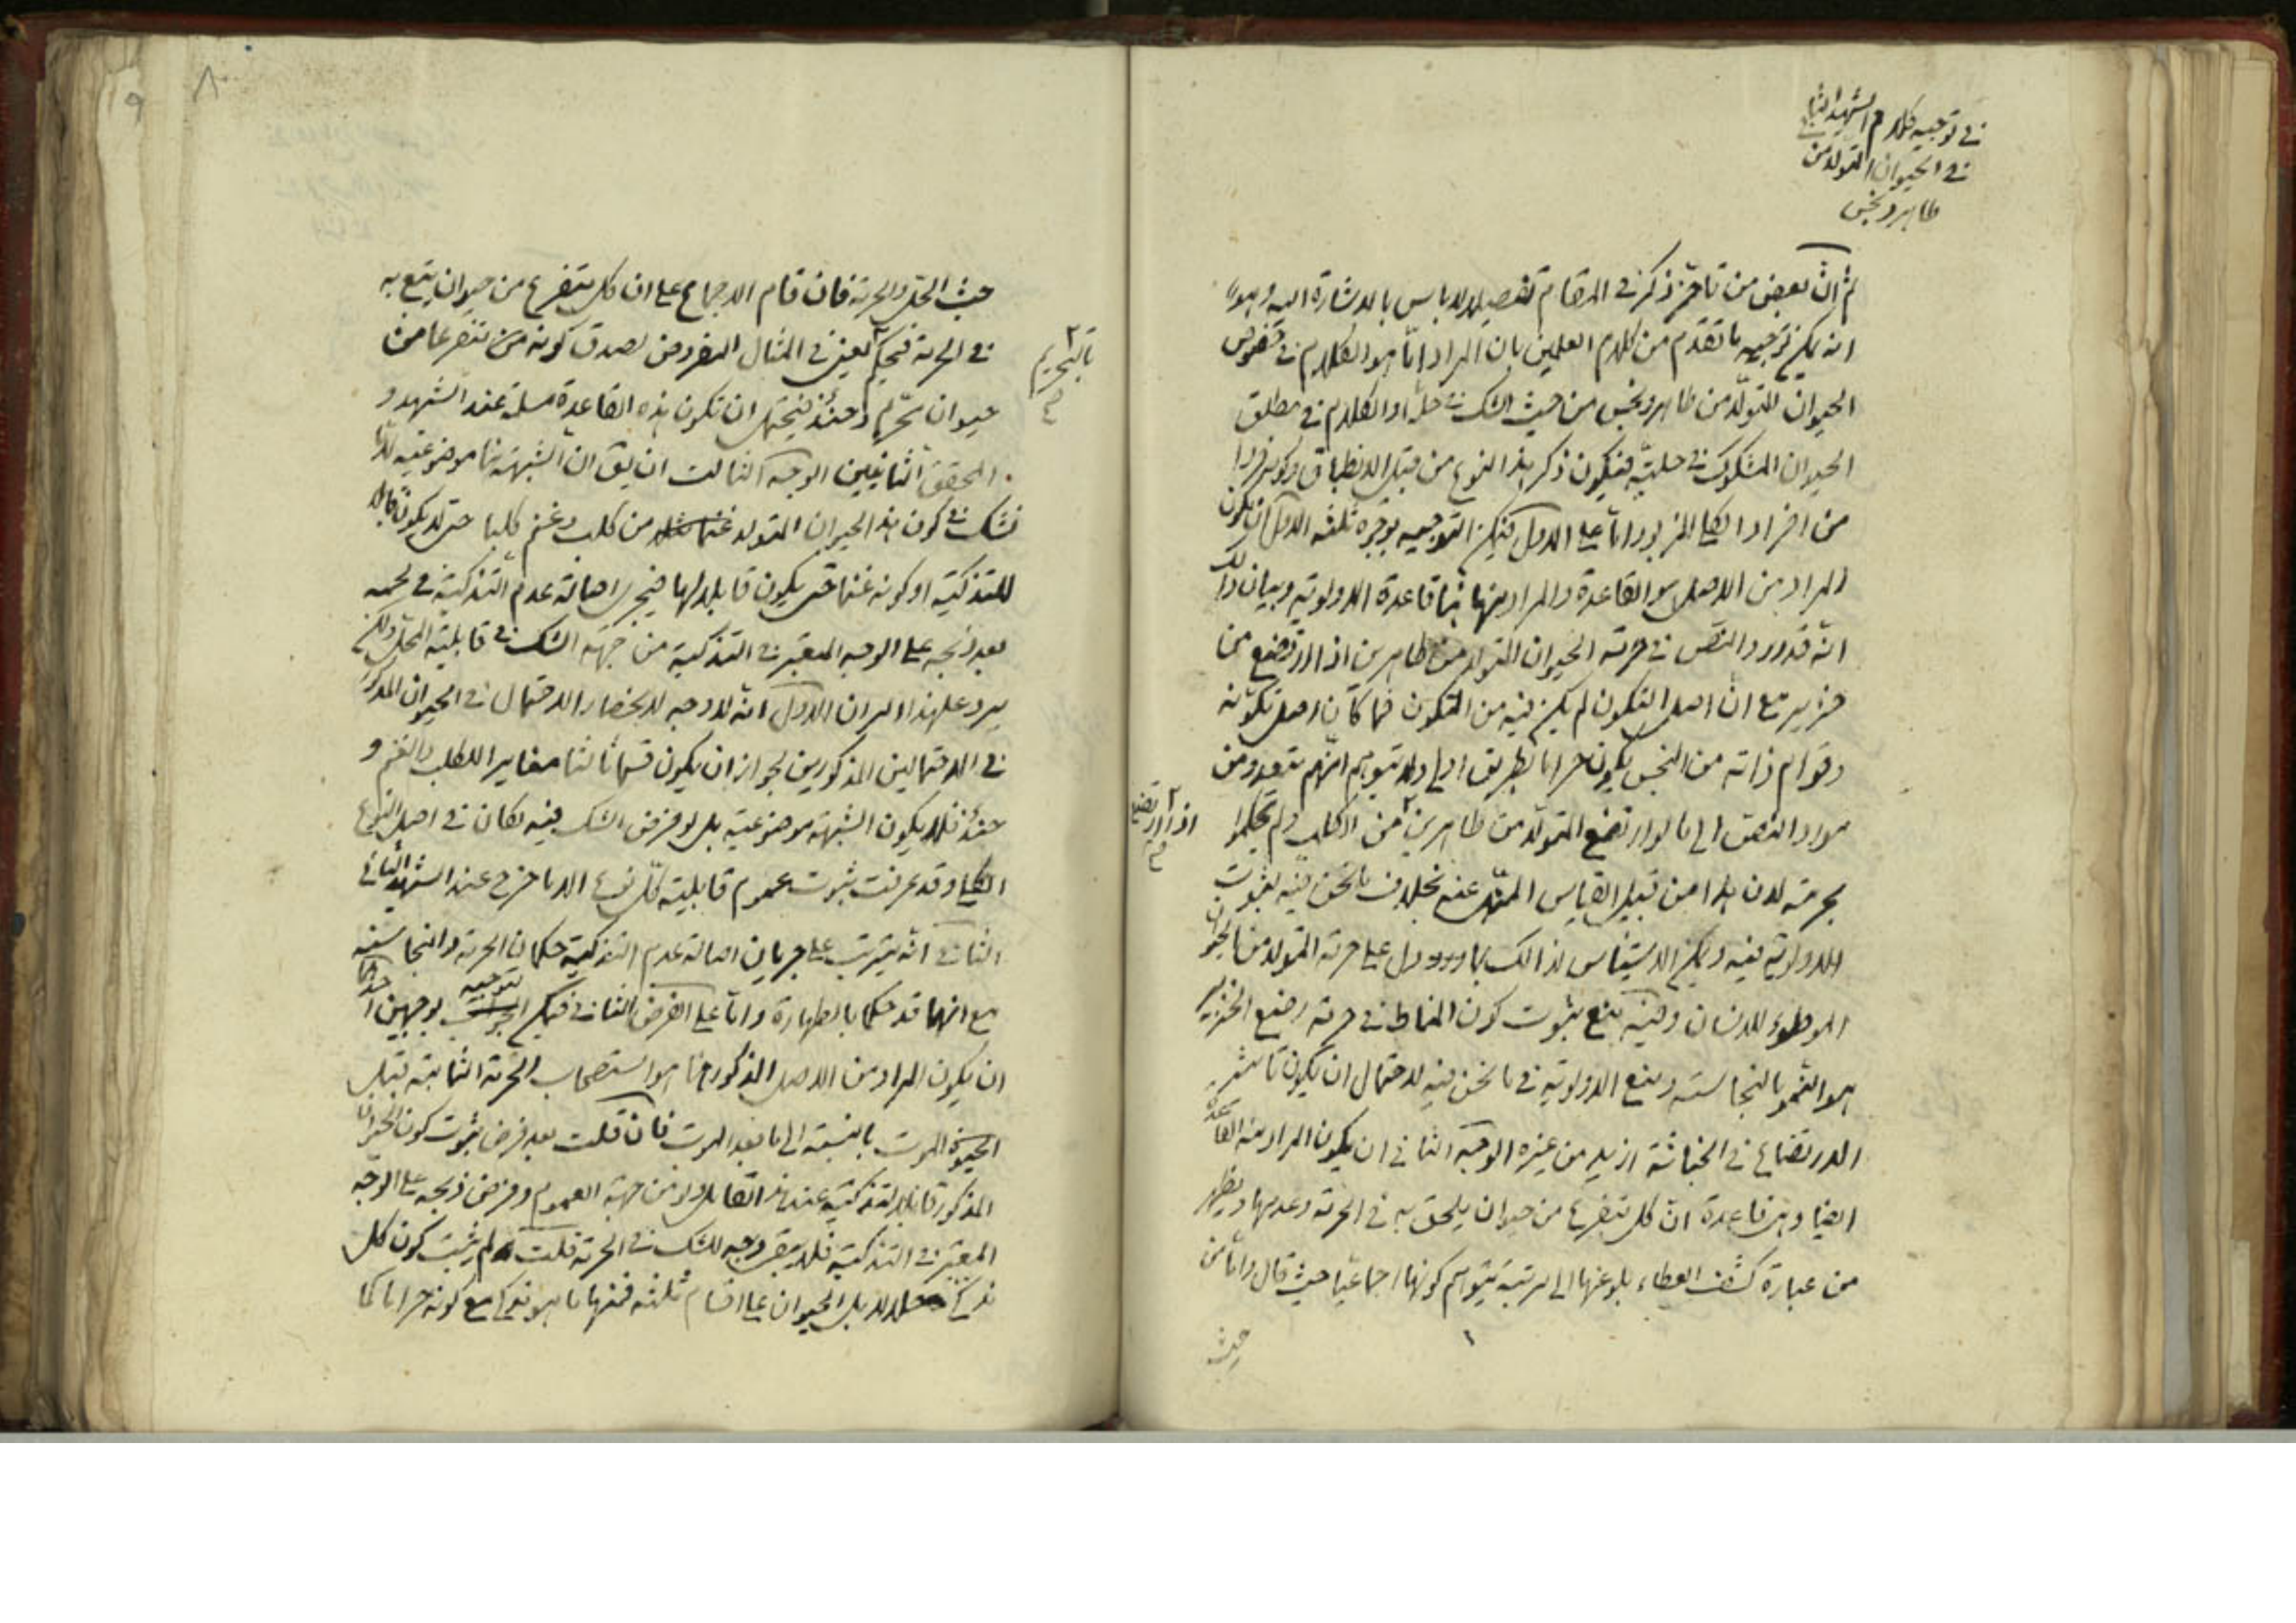 في توجيه كلام الشهيد الثاني
في الحيوان المتولد من
طاهر ونجس
ثم ان بعض من تاخر ذكر في المقام تفصيلا لا باس بالاشارة اليه وهو
انه يمكن توجيه ما تقدم من كلام العلمين بان المراد اما هو الكلام في خصوص
الحيوان المتولد من طاهر ونجس من حيث الشك في حله او الكلام في مطلق
الحيوان المشكوك في حليته فيكون ذكر هذا النوع من قبيل الانطباق وكونه فردا
من افراد الكلي المزبور اما على الاول فيمكن التوجيه بوجوه ثلثه الاول ان يكون
المراد من الاصل هو القاعدة والمراد بها هنا قاعدة الاولوية وبيان ذلك
انه قد ورد النص في حرمة الحيوان المتولد من طاهرين اذا ارتضع من
خنزير مع ان اصل التكون لم يكن فيه من المتكون فما كان اصل تكونه
وقوام ذاته من النجس يكون حراما بطريق اولى ولا يتوهم انهم لم يتعدوا من
مورد النص الى ما لو ارتضع المتولد من طاهرين من الكلب ولم يحكموا
اذا ارتضع
بحرمته لان هذا من قبيل القياس المنهى عنه بخلاف ما نحن فيه لثبوت
الاولوية فيه ويمكن الاستيناس لذالك بما ورد ودل على حرمة المتولد من الحيوان
الموطوء للانسان وفيه منع ثبوت كون المناط في حرمة رضيع الخنزير
هو النمو بالنجاسة ومنع الاولوية في ما نحن فيه لاحتمال ان يكون تاثير
الارتضاع في الخباثة ازيد من غيره الوجه الثاني ان يكون المراد منه القاعدة
ايضا وهي قاعدة ان كل متفرع من حيوان يلحق به في الحرمة وعدمها ويظهر
من عبارة كشف الغطاء بلوغها الى مرتبة يتوهم كونها اجماعيا حيث قال واما من
حيث
حيث الحل والحرمة فان قام الاجماع على ان كل متفرع من حيوان يتبع به
في الحرمة فيحكم يعني في المثال المفروض لصدق كونه متفرعا من
بالتحريم
حيوان محرم وحينئذ فيحتمل ان تكون هذه القاعدة مسلمة عند الشهيد و
المحقق الثانيين الوجه الثالث ان يق ان الشبهة هنا موضوعية لانا
نشك في كون هذا الحيوان المتولد من كلب وغنم كلبا حتى لا يكون قابلا
للتذكية او كونه غنما حتى يكون قابلا لها فيجري اصالة عدم التذكية في لحمه
بعد ذبحه على الوجه المعتبر في التذكية من جهة الشك في قابلية المحل ولكن
يرد عليه امران الاول انه لا وجه لانحصار الاحتمال في الحيوان المذكور
في الاحتمالين المذكورين لجواز ان يكون قسما ثالثا مغايرا للكلب والغنم و
حينئذ فلا يكون الشبهة موضوعية بل لو فرض الشك فيه لكان في اصل النوع
الكلي وقد عرفت ثبوت عموم قابلية كل نوع الا ما خرج عند الشهيد الثاني
الثاني انه يترتب على جريان اصالة عدم التذكية حكمان الحرمة والنجاسة
مع انهما قد حكما بالطهارة واما على الفرض الثاني فيمكن توجيه بوجهين احدهما
ان يكون المراد من الاصل المذكور هنا هو استصحاب الحرمة الثابتة قبل
الموت بالنسبة الى ما بعد الموت فان قلت بعد فرض ثبوت كون الحيوان
المذكور قابلا لتذكية عند القائل ولو من جهة العموم وفرض ذبحه على الوجه
المعتبر في التذكية فلا يبقى وجه للشك في الحرمة قلت لم يثبت كون كل
مذكى حلالا بل الحيوان على اقسام ثلثه فمنها ما هو مذكى مع كونه حراما كما